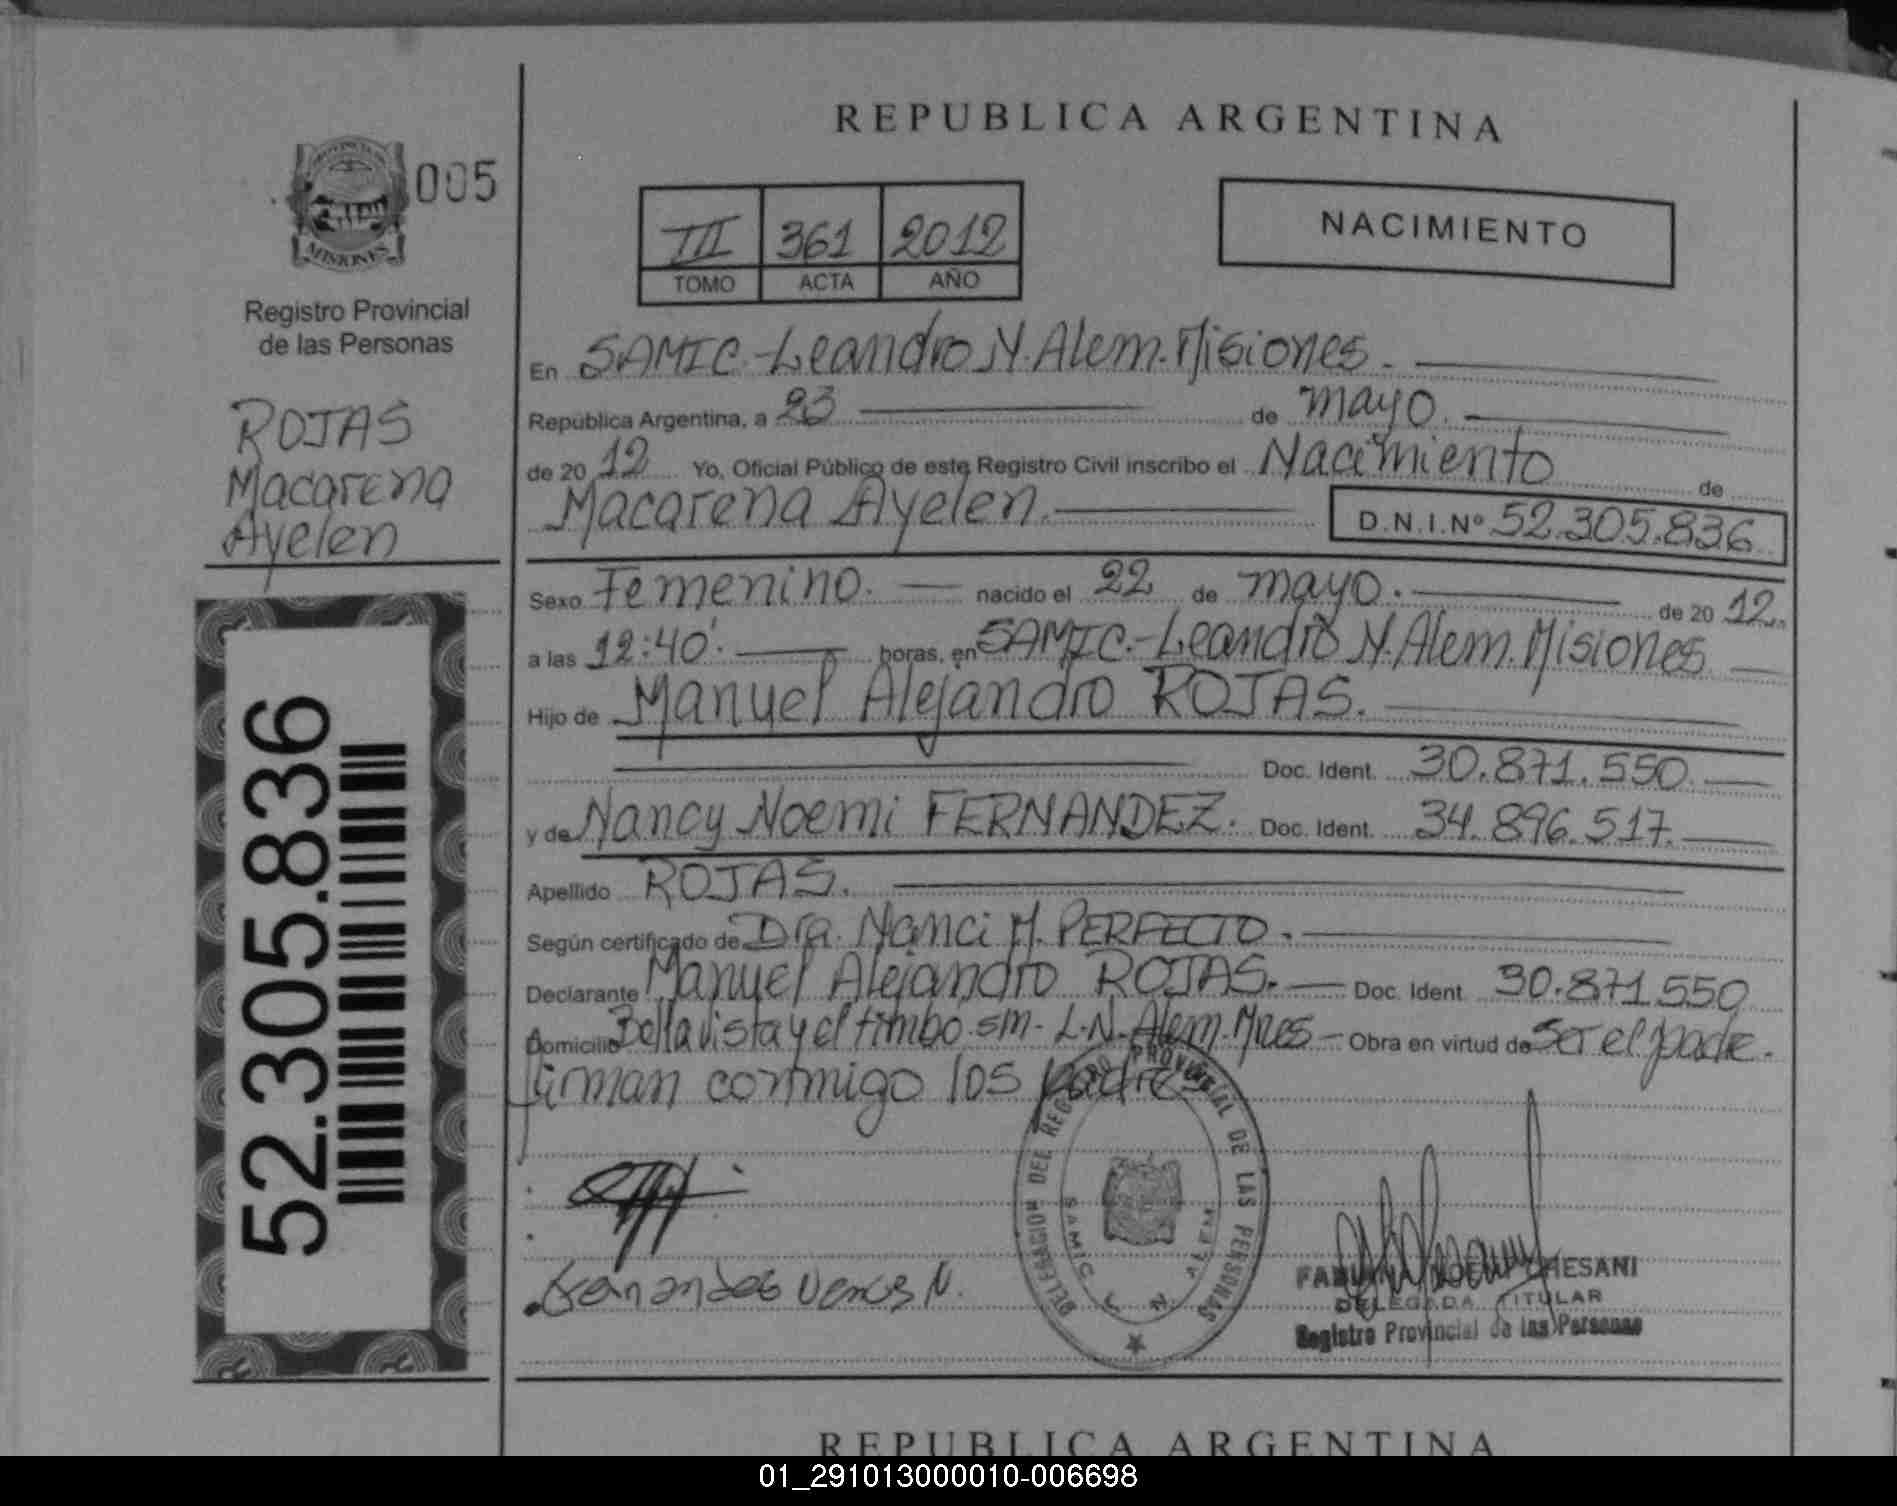 REPUBLICA ARGENTINA
PROVINCIA DE
MISIONES
005
Registro Provincial
de las Personas
ROJAS
Macarena
Ayelen
52.305.836
III 361 2012
TOMO ACTA AÑO
NACIMIENTO
En SAMIC.-Leandro N. Alem. Misiones.
República Argentina, a 23 de mayo.
de 20 12 Yo, Oficial Público de este Registro Civil inscribo el Nacimiento de
Macarena Ayelen. D.N.I.Nº 52.305.836
Sexo Femenino. nacido el 22 de mayo. de 20 12.
a las 12:40'. horas, en SAMIC.-Leandro N. Alem. Misiones
Hijo de Manuel Alejandro ROJAS.
Doc. Ident. 30.871.550.
y de Nancy Noemi FERNANDEZ. Doc. Ident. 34.896.517.
Apellido ROJAS.
Según certificado de Dra. Nanci M. PERFECTO.
Declarante Manuel Alejandro ROJAS. Doc. Ident. 30.871.550
Domicilio Bella vista y el timbo. sm- L.N. Alem. Mnes - Obra en virtud de Ser el padre.
firman conmigo los padres
DELEGACION DEL REGISTRO PROVINCIAL DE LAS PERSONAS
SAMIC L. N. ALEM
NOEMI CHESANI
DELEGADA TITULAR
Registro Provincial de las Personas
REPUBLICA ARGENTINA
01_291013000010-006698